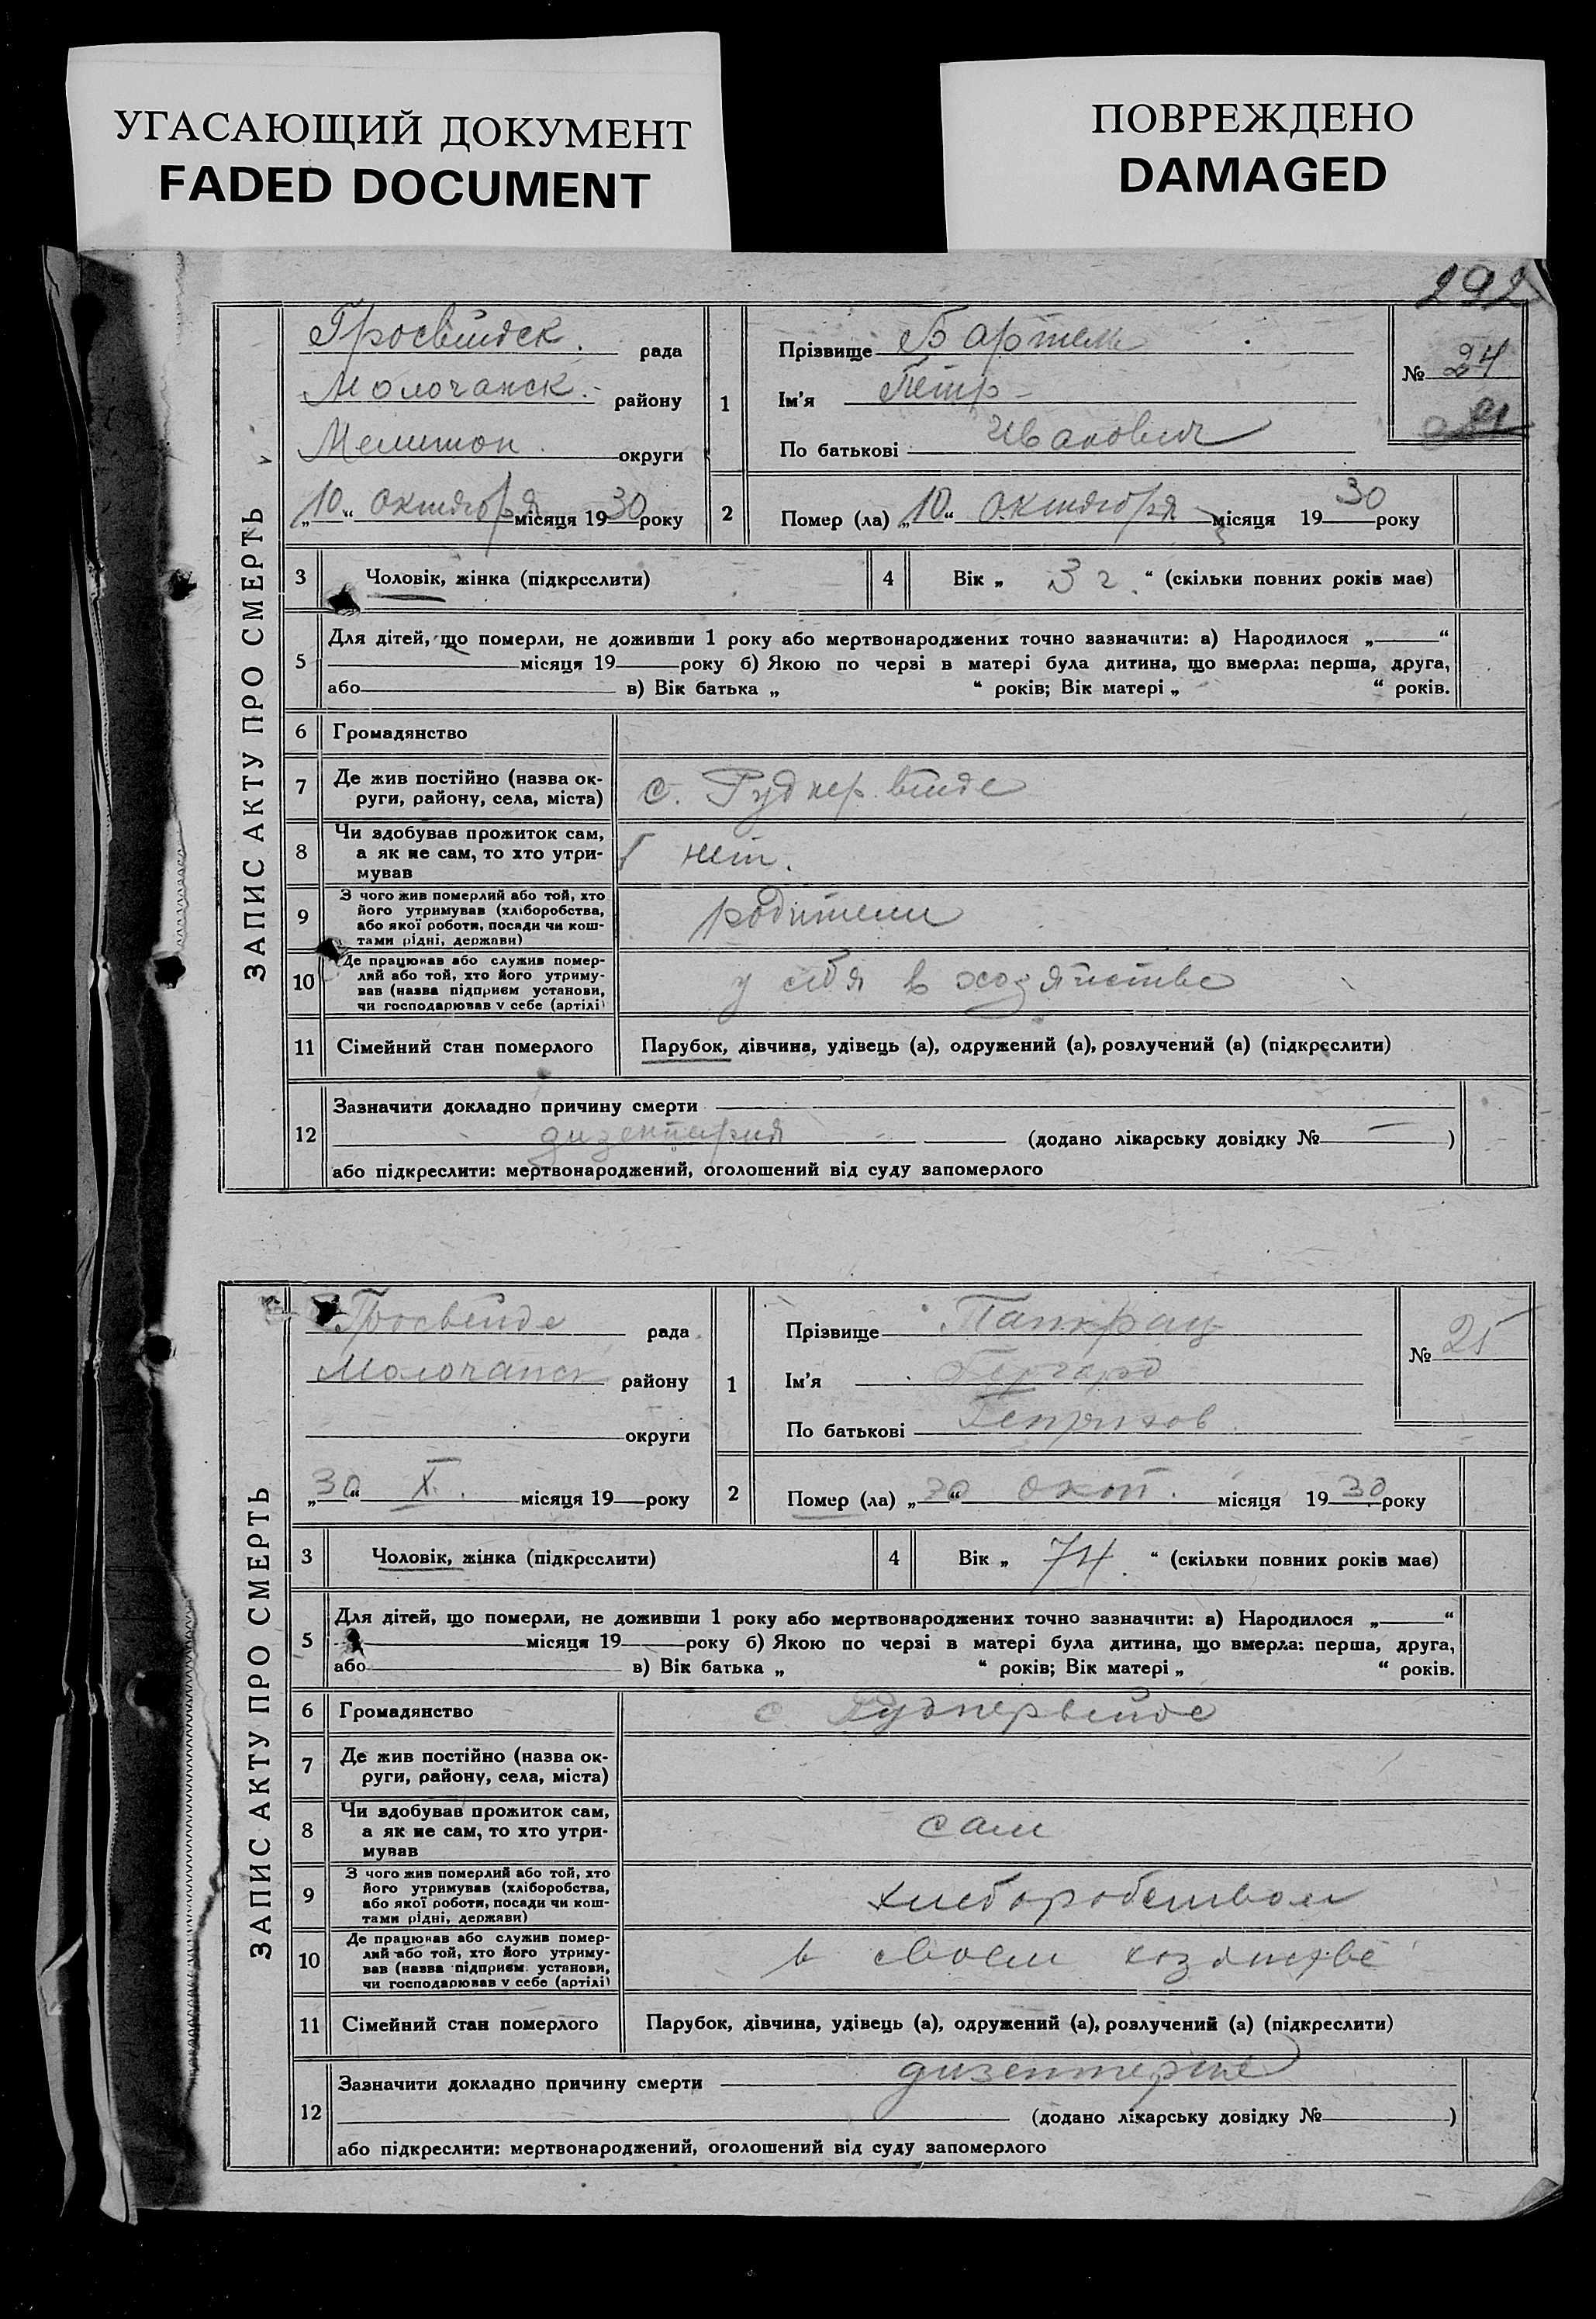 УГАСАЮЩИЙ ДОКУМЕНТ
FADED DOCUMENT
ПОВРЕЖДЕНО
DAMAGED
292
ЗАПИС АКТУ ПРО СМЕРТЬ
Гросвейдск. рада
Молочанск. району
Мелитоп. округи
„10“ октября місяця 1930 року
1
Прізвище Бартель
Ім'я Петр
По батькові Иванович
№ 24
2 Помер (ла) „10“ октября місяця 1930 року
3 Чоловік, жінка (підкреслити)
4 Вік „ 3 г. “ (скільки повних років має)
5 Для дітей, що померли, не доживши 1 року або мертвонароджених точно зазначити: а) Народилося „ “
місяця 19 року б) Якою по черзі в матері була дитина, що вмерла: перша, друга,
або в) Вік батька „ “ років; Вік матері „ “ років.
6 Громадянство
7 Де жив постійно (назва округи, району, села, міста) с. Руднервейде
8 Чи здобував прожиток сам,
а як не сам, то хто утри-
мував
нет.
9 З чого жив померлий або той, хто
його утримував (хліборобства,
або якої роботи, посади чи кош-
тами рідні, держави)
родители
10 Де працював або служив помер-
лий або той, хто його утриму-
вав (назва підприєм установи,
чи господарював у себе (артілі)
у себя в хозяйстве
11 Сімейний стан померлого Парубок, дівчина, удівець (а), одружений (а), розлучений (а) (підкреслити)
12 Зазначити докладно причину смерти
дизентерия (додано лікарську довідку № — )
або підкреслити: мертвонароджений, оголошений від суду запомерлого
ЗАПИС АКТУ ПРО СМЕРТЬ
Гросвейде рада
Молочанск району
округи
„30“ X. місяця 19 року
1
Прізвище Панкрац
Ім'я Гергард
По батькові Генрихов
№ 25
2 Помер (ла) „30“ окт. місяця 1930 року
3 Чоловік, жінка (підкреслити)
4 Вік „ 74. “ (скільки повних років має)
5 Для дітей, що померли, не доживши 1 року або мертвонароджених точно зазначити: а) Народилося „ “
місяця 19 року б) Якою по черзі в матері була дитина, що вмерла: перша, друга,
або в) Вік батька „ “ років; Вік матері „ “ років.
6 Громадянство с. Руднервейде
7 Де жив постійно (назва ок-
руги, району, села, міста)
8 Чи здобував прожиток сам,
а як не сам, то хто утри-
мував
сам
9 З чого жив померлий або той, хто
його утримував (хліборобства,
або якої роботи, посади чи кош-
тами рідні, держави)
хлеборобством
10 Де працював або служив помер-
лий або той, хто його утриму-
вав (назва підприєм. установи,
чи господарював у себе (артілі)
в своем хозяйстве
11 Сімейний стан померлого Парубок, дівчина, удівець (а), одружений (а), розлучений (а) (підкреслити)
12 Зазначити докладно причину смерти дизентерие
(додано лікарську довідку № )
або підкреслити: мертвонароджений, оголошений від суду запомерлого